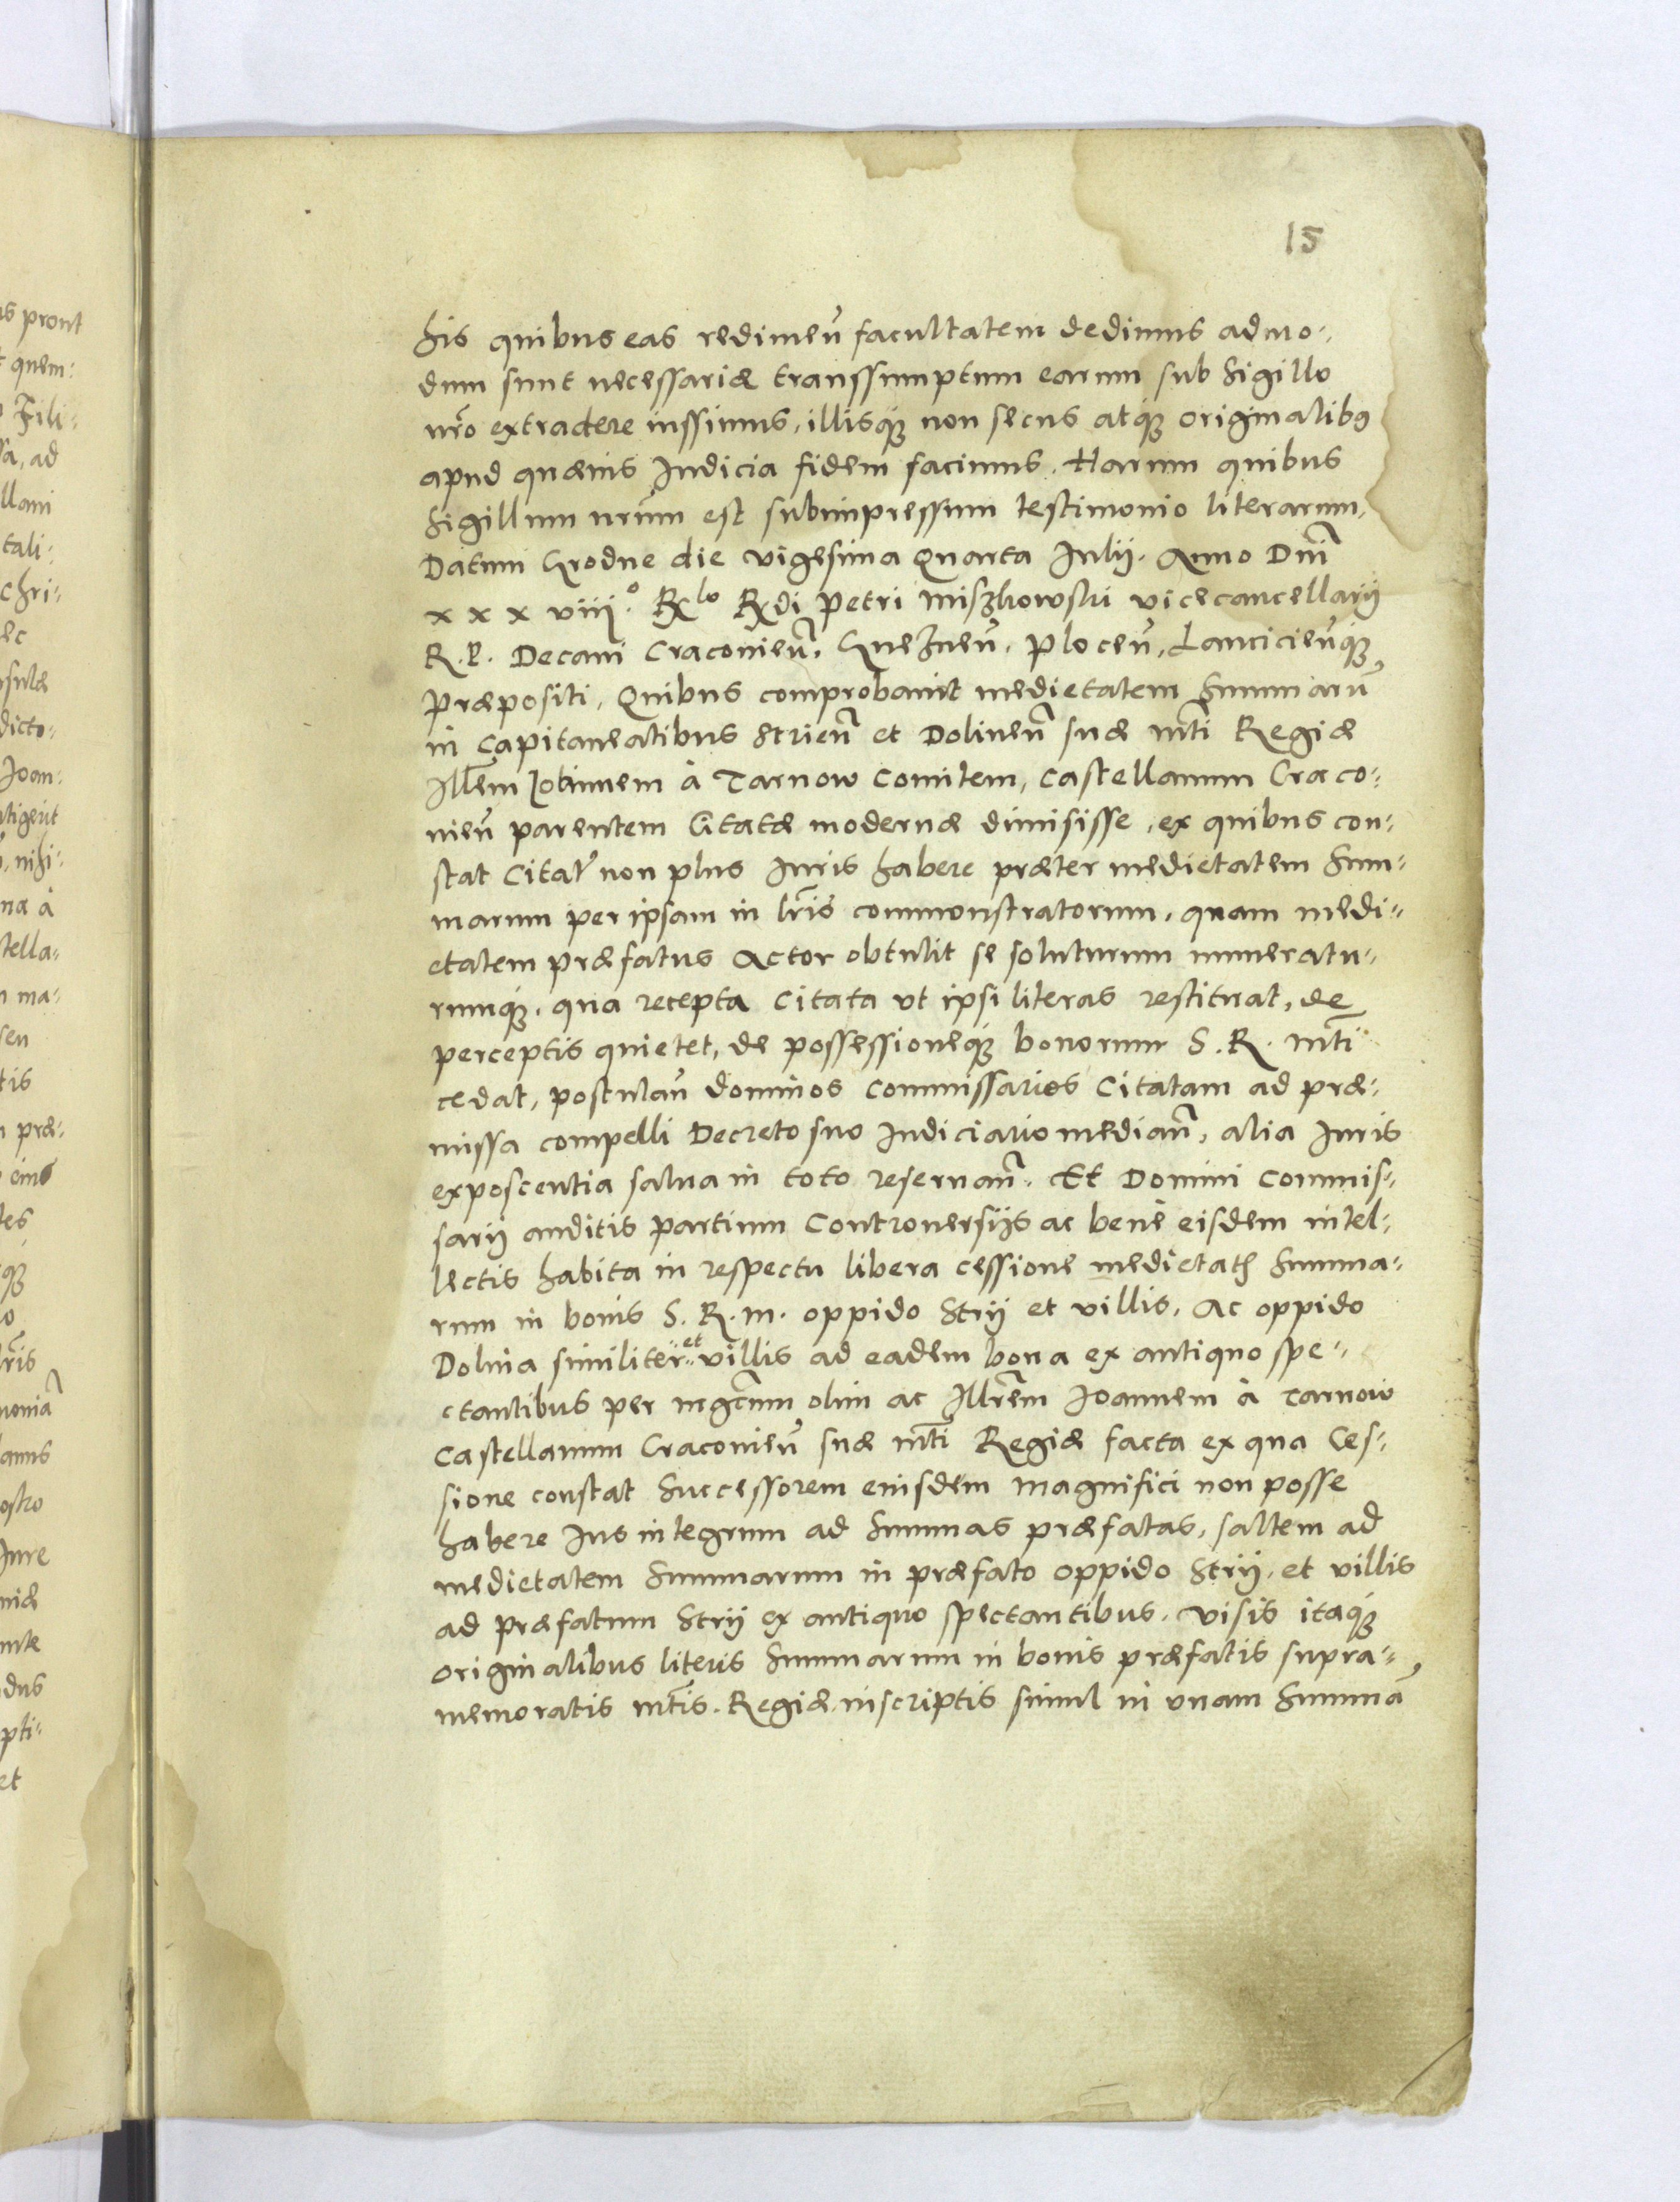 15
his quibus eas redimeñ facultatem dedimus admo-
dum sunt necessariæ transsumptum earum sub Sigillo
nr̃o extradere iussimus, illisq; non secus atq; originalib9
apud quævis Iudicia fidem facimus. Harum quibus
Sigillum nrũm est subimpressum testimonio literarum,
Datum Grodne die vigesima Quarta Iulij. Anno Dñi
x x x viij.º Rx lo Rxdi Petri Miszkowski vicecancellarij
R. P. Decani Craconieñ. Gnezneñ. Ploceñ, Lancicieñq;
Præpositi, Quibus comprobauit medietatem Summarũ
in Capitaneatibus Strieñ et Dolineñ suæ Mt̃i Regiæ
Illr̃em Ioannem à Tarnow Comitem, Castellanum Craco-
nieñ parentem Citatæ modernæ dimisisse, ex quibus con-
stat Citat̃ non plus Iuris habere præter medietatem Sum-
marum per ipsam in lr̃is commonstratorum, quam medi-
etatem præfatus Actor obtulit se soluturum numeratu-
rumq;, qua recepta Citata vt ipsi literas restituat, de
perceptis quietet, de possessioneq; bonorum S. R. Mt̃i
cedat, postulañ dominos Commissarios Citatam ad præ-
missa compelli Decreto suo Iudiciario mediañ, alia Iuris
exposcentia salua in toto reseruañ. Et Domini Commis-
sarij auditis partium Controuersijs ac bene eisdem intel-
lectis habita in respectu libera cessione medietatis Summa-
rum in bonis S. R. M. oppido Strij et villis, Ac oppido
Dolina similiter et villis ad eadem bona ex antiquo spe-
ctantibus per mgc̃um olim ac Illr̃em Ioannem à Tarnow
Castellanum Craconieñ suæ Mt̃i Regiæ facta ex qua Ces-
sione constat Successorem eiusdem Magnifici non posse
habere Ius integrum ad Summas præfatas, saltem ad
medietatem Summarum in præfato oppido Strij, et villis
ad præfatum Strij ex antiquo spectantibus. Visis itaq;
originalibus literis Summarum in bonis præfatis supra-
memoratis Mt̃is. Regiæ inscriptis simul in vnam Summã